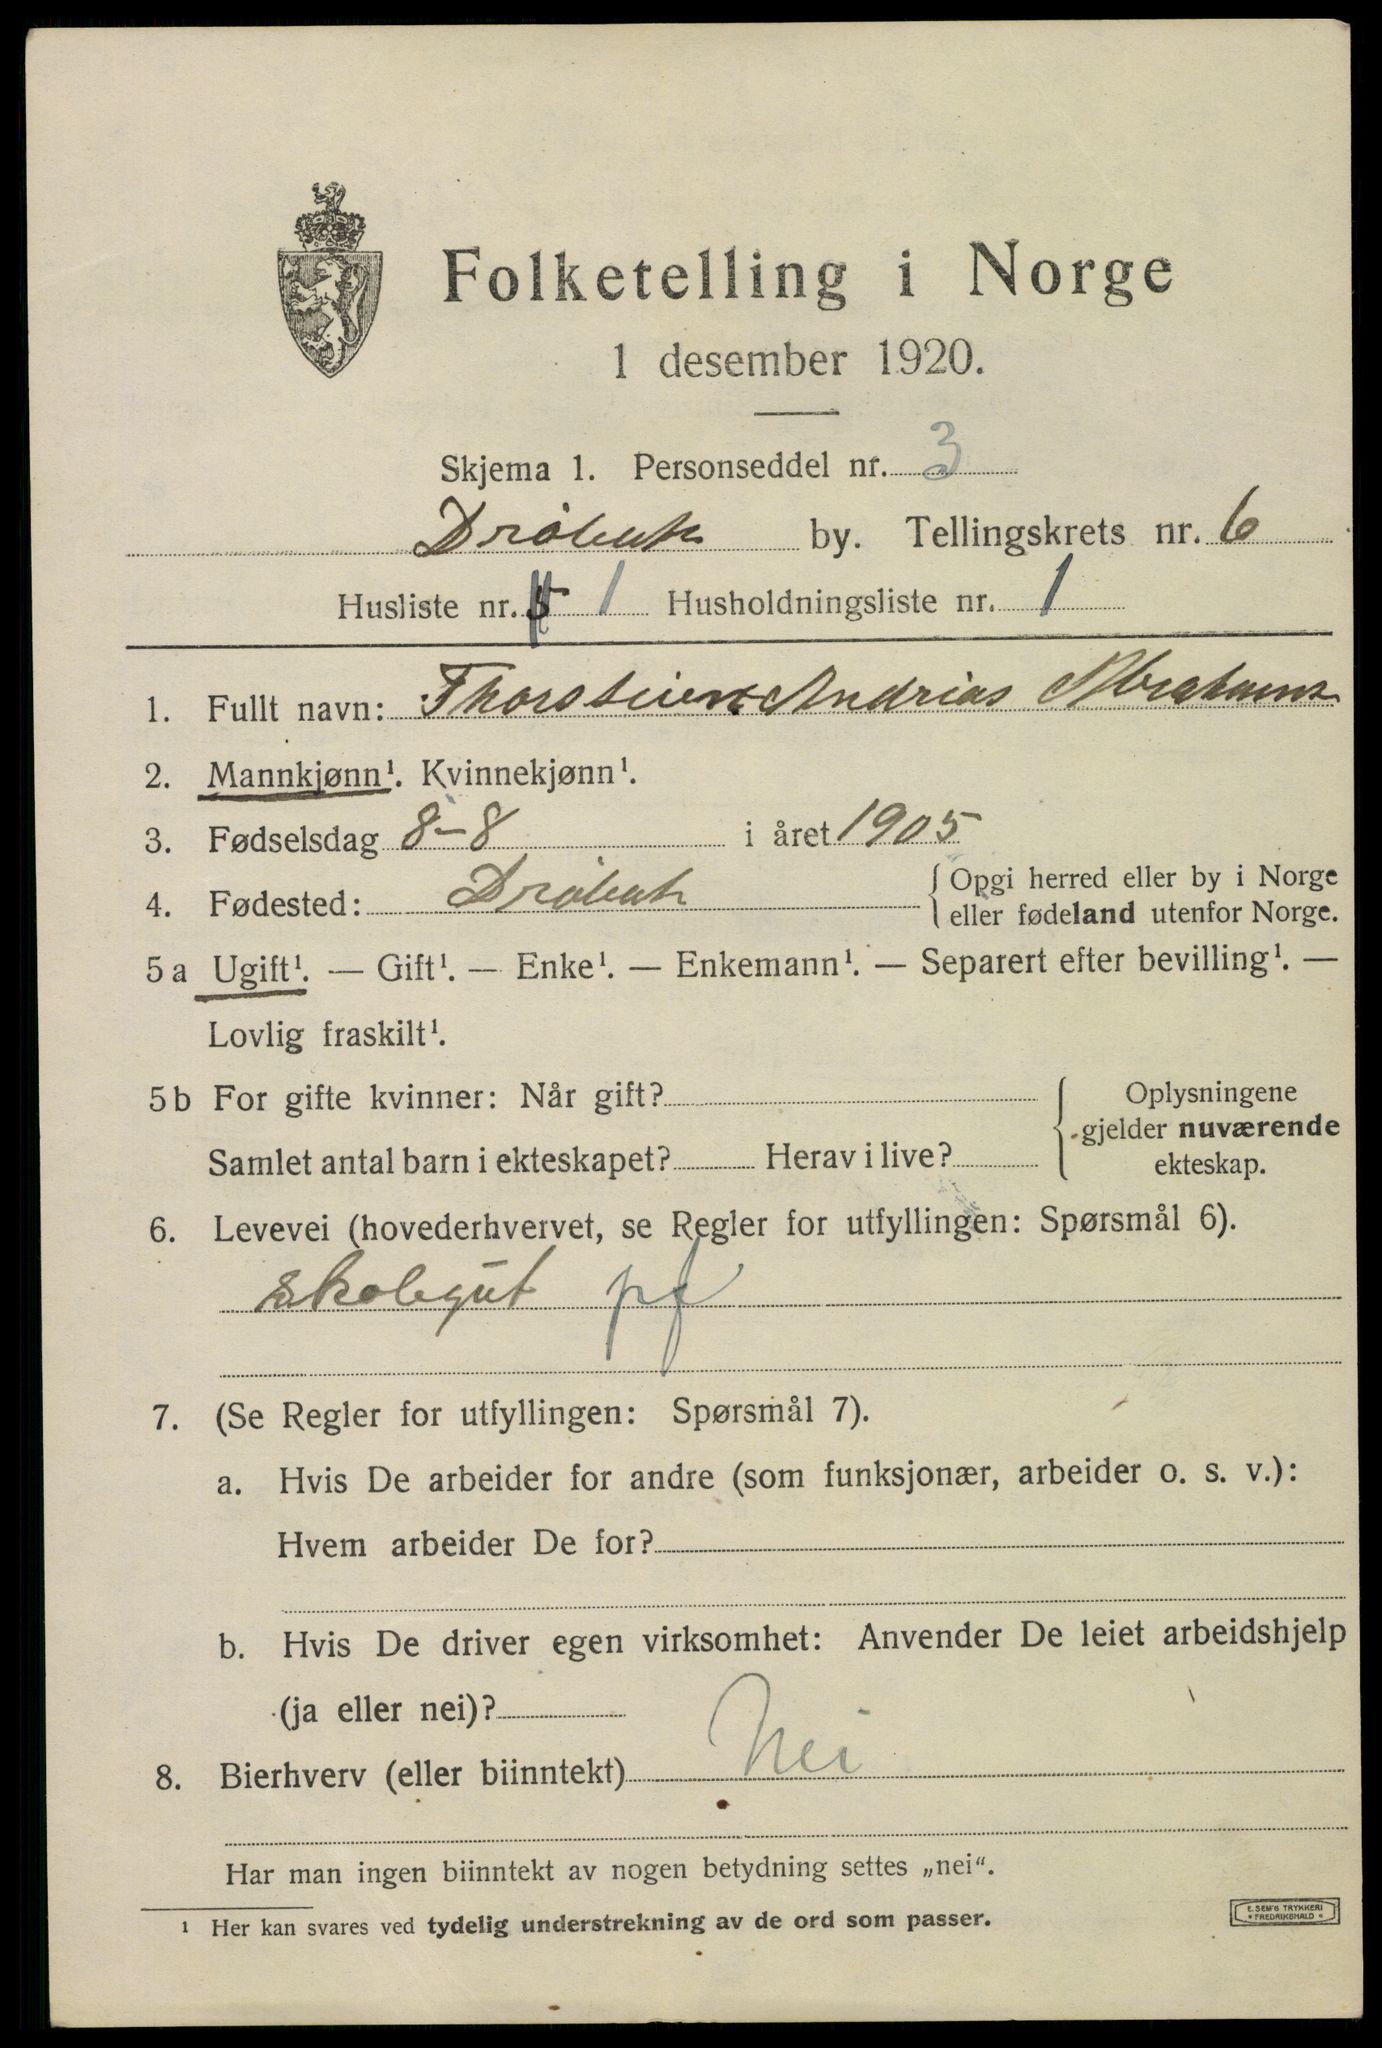 Folketelling i Norge
1 desember 1920.
Skjema 1. Personseddel nr. 3
Drøbak by. Tellingskrets nr. 6
Husliste nr. 1 Husholdningsliste nr. 1
1. Fullt navn: Thorstein Andrias Abrahams
2. Mannkjønn¹. Kvinnekjønn¹.
3. Fødselsdag 8-8 i året 1905
4. Fødested: Drøbak { Opgi herred eller by i Norge
eller fødeland utenfor Norge.
5a Ugift¹. — Gift¹. — Enke¹. — Enkemann¹. — Separert efter bevilling¹. —
Lovlig fraskilt¹.
5b For gifte kvinner: Når gift? { Oplysningene
gjelder nuværende
Samlet antal barn i ekteskapet? Herav i live?
ekteskap.
6. Levevei (hovederhvervet, se Regler for utfyllingen: Spørsmål 6).
Skolegut pf
7. (Se Regler for utfyllingen: Spørsmål 7).
a. Hvis De arbeider for andre (som funksjonær, arbeider o. s. v.):
Hvem arbeider De for?
b. Hvis De driver egen virksomhet: Anvender De leiet arbeidshjelp
(ja eller nei)?
8. Bierhverv (eller biinntekt) Nei
Har man ingen biinntekt av nogen betydning settes „nei“.
¹ Her kan svares ved tydelig understrekning av de ord som passer.
E. SEM'S TRYKKERI
* FREDRIKSHALD *